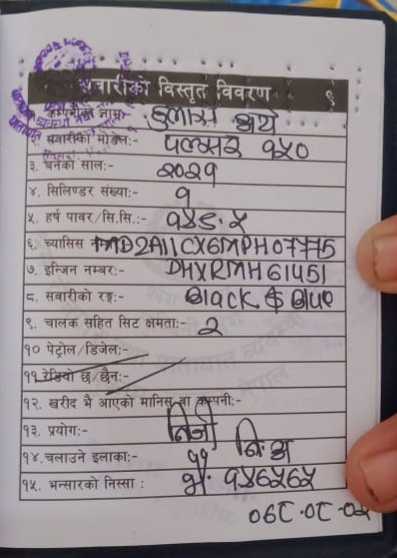 सवारीको विस्तृत विवरण ९
कम्पनीको नाम:- हुलास अटो
सवारीको मोडेल:- पल्सर १५०
३. बनेको साल:- २०२१
४. सिलिण्डर संख्या:- १
५. हर्ष पावर/सि.सि.:- १४९.५
६. च्यासिस नं MD2A11CX6MPH07775
७. इन्जिन नम्बर:- DHXRMH61451
८. सवारीको रङ्ग:- Black & Blue
९. चालक सहित सिट क्षमता:- २
१० पेट्रोल/डिजेल:-
११ रेडियो छ/छैन:-
१२. खरीद भै आएको मानिस वा कम्पनी:-
१३. प्रयोग:- निजी
१४. चलाउने इलाका:-
१५. भन्सारको निस्सा :